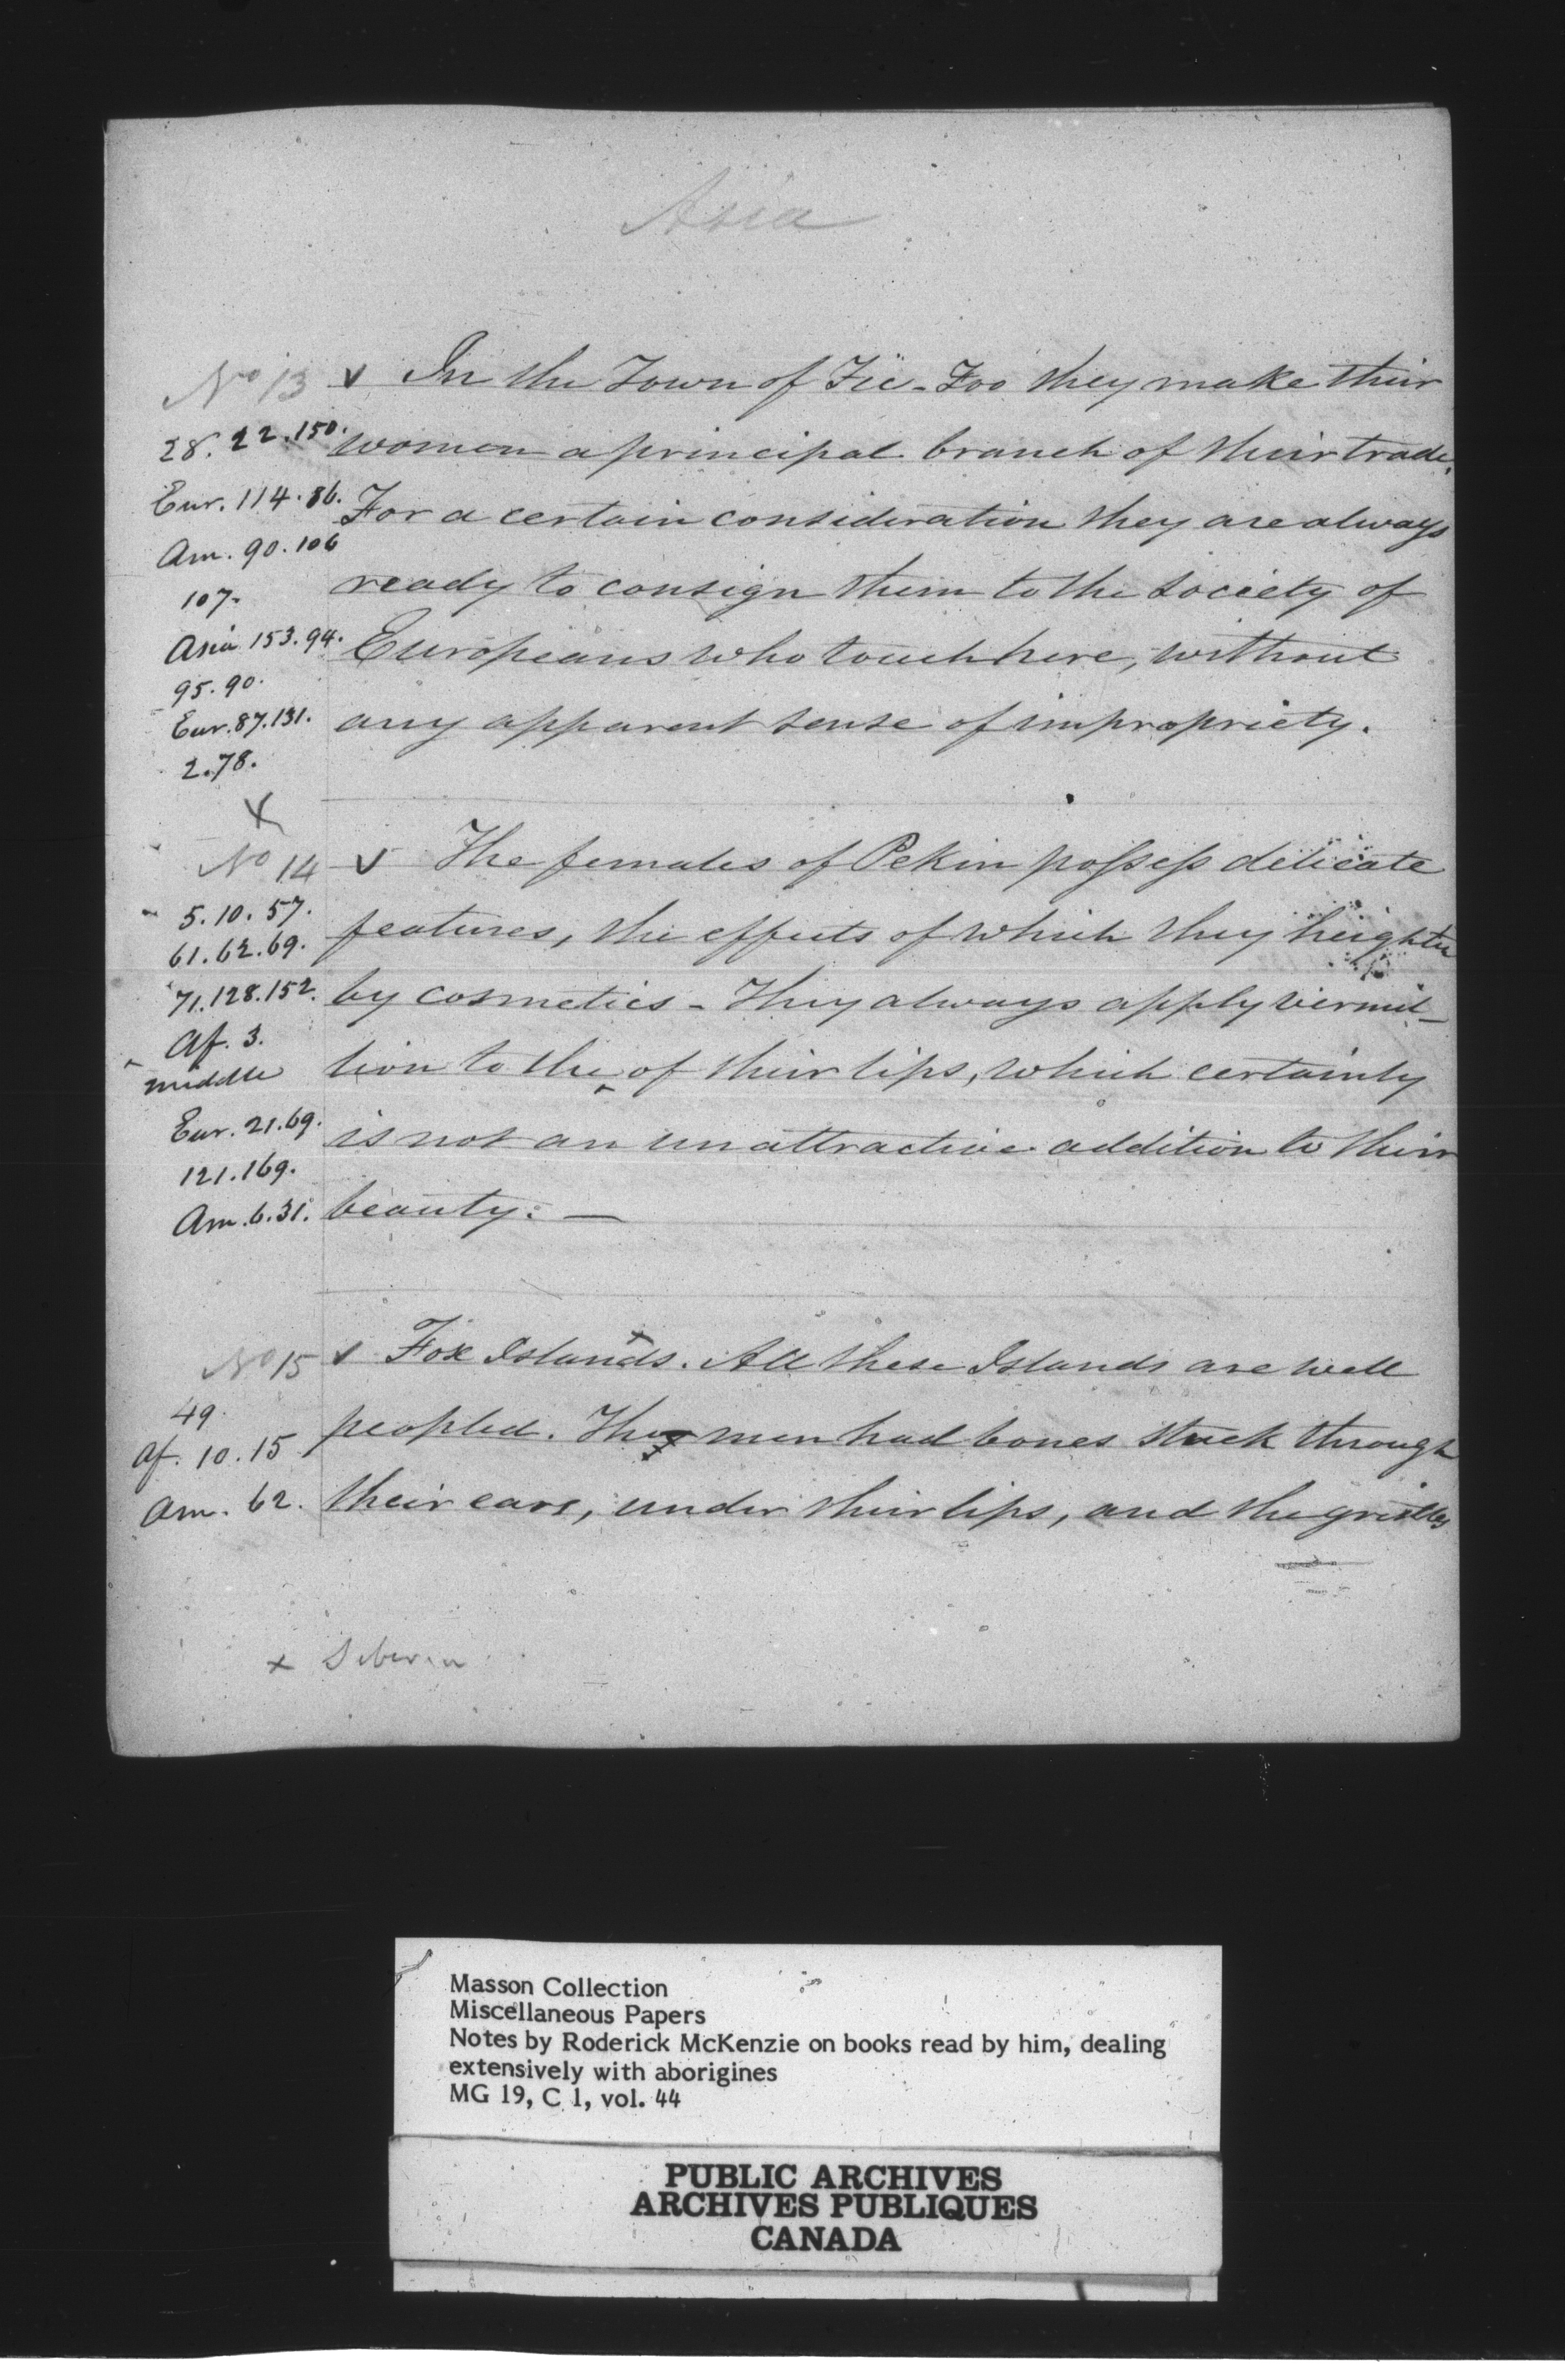 Asia
No 13 v In the Town of Fic-Foo they make their
28. 22. 150. women a principal branch of their trade.
Eur. 114. 86. For a certain consideration they are always
Am. 90. 106
107. ready to consign them to the society of
Asia 153. 94. Europeans who touch here, without
95. 90.
Eur. 87. 131. any apparent sense of impropriety.
2. 78.
X
No 14 v The females of Pekin possess delicate
5. 10. 57. features, the effects of which they heighten
61. 62. 69.
71. 128. 152. by cosmetics - They always apply vermil-
Af. 3.
middle lion to the ‸ of their lips, which certainly
Eur. 21. 69. is not an unattractive addition to their
121. 169.
Am. 6. 31. beauty. —
No 15 v Fox Islands. x All these Islands are well
49. peopled. The men had bones stuck through
Af. 10. 15
Am. 62. their ears, under their lips, and the gristles
x Siberia
Masson Collection
Miscellaneous Papers
Notes by Roderick McKenzie on books read by him, dealing
extensively with aborigines
MG 19, C 1, vol. 44
PUBLIC ARCHIVES
ARCHIVES PUBLIQUES
CANADA